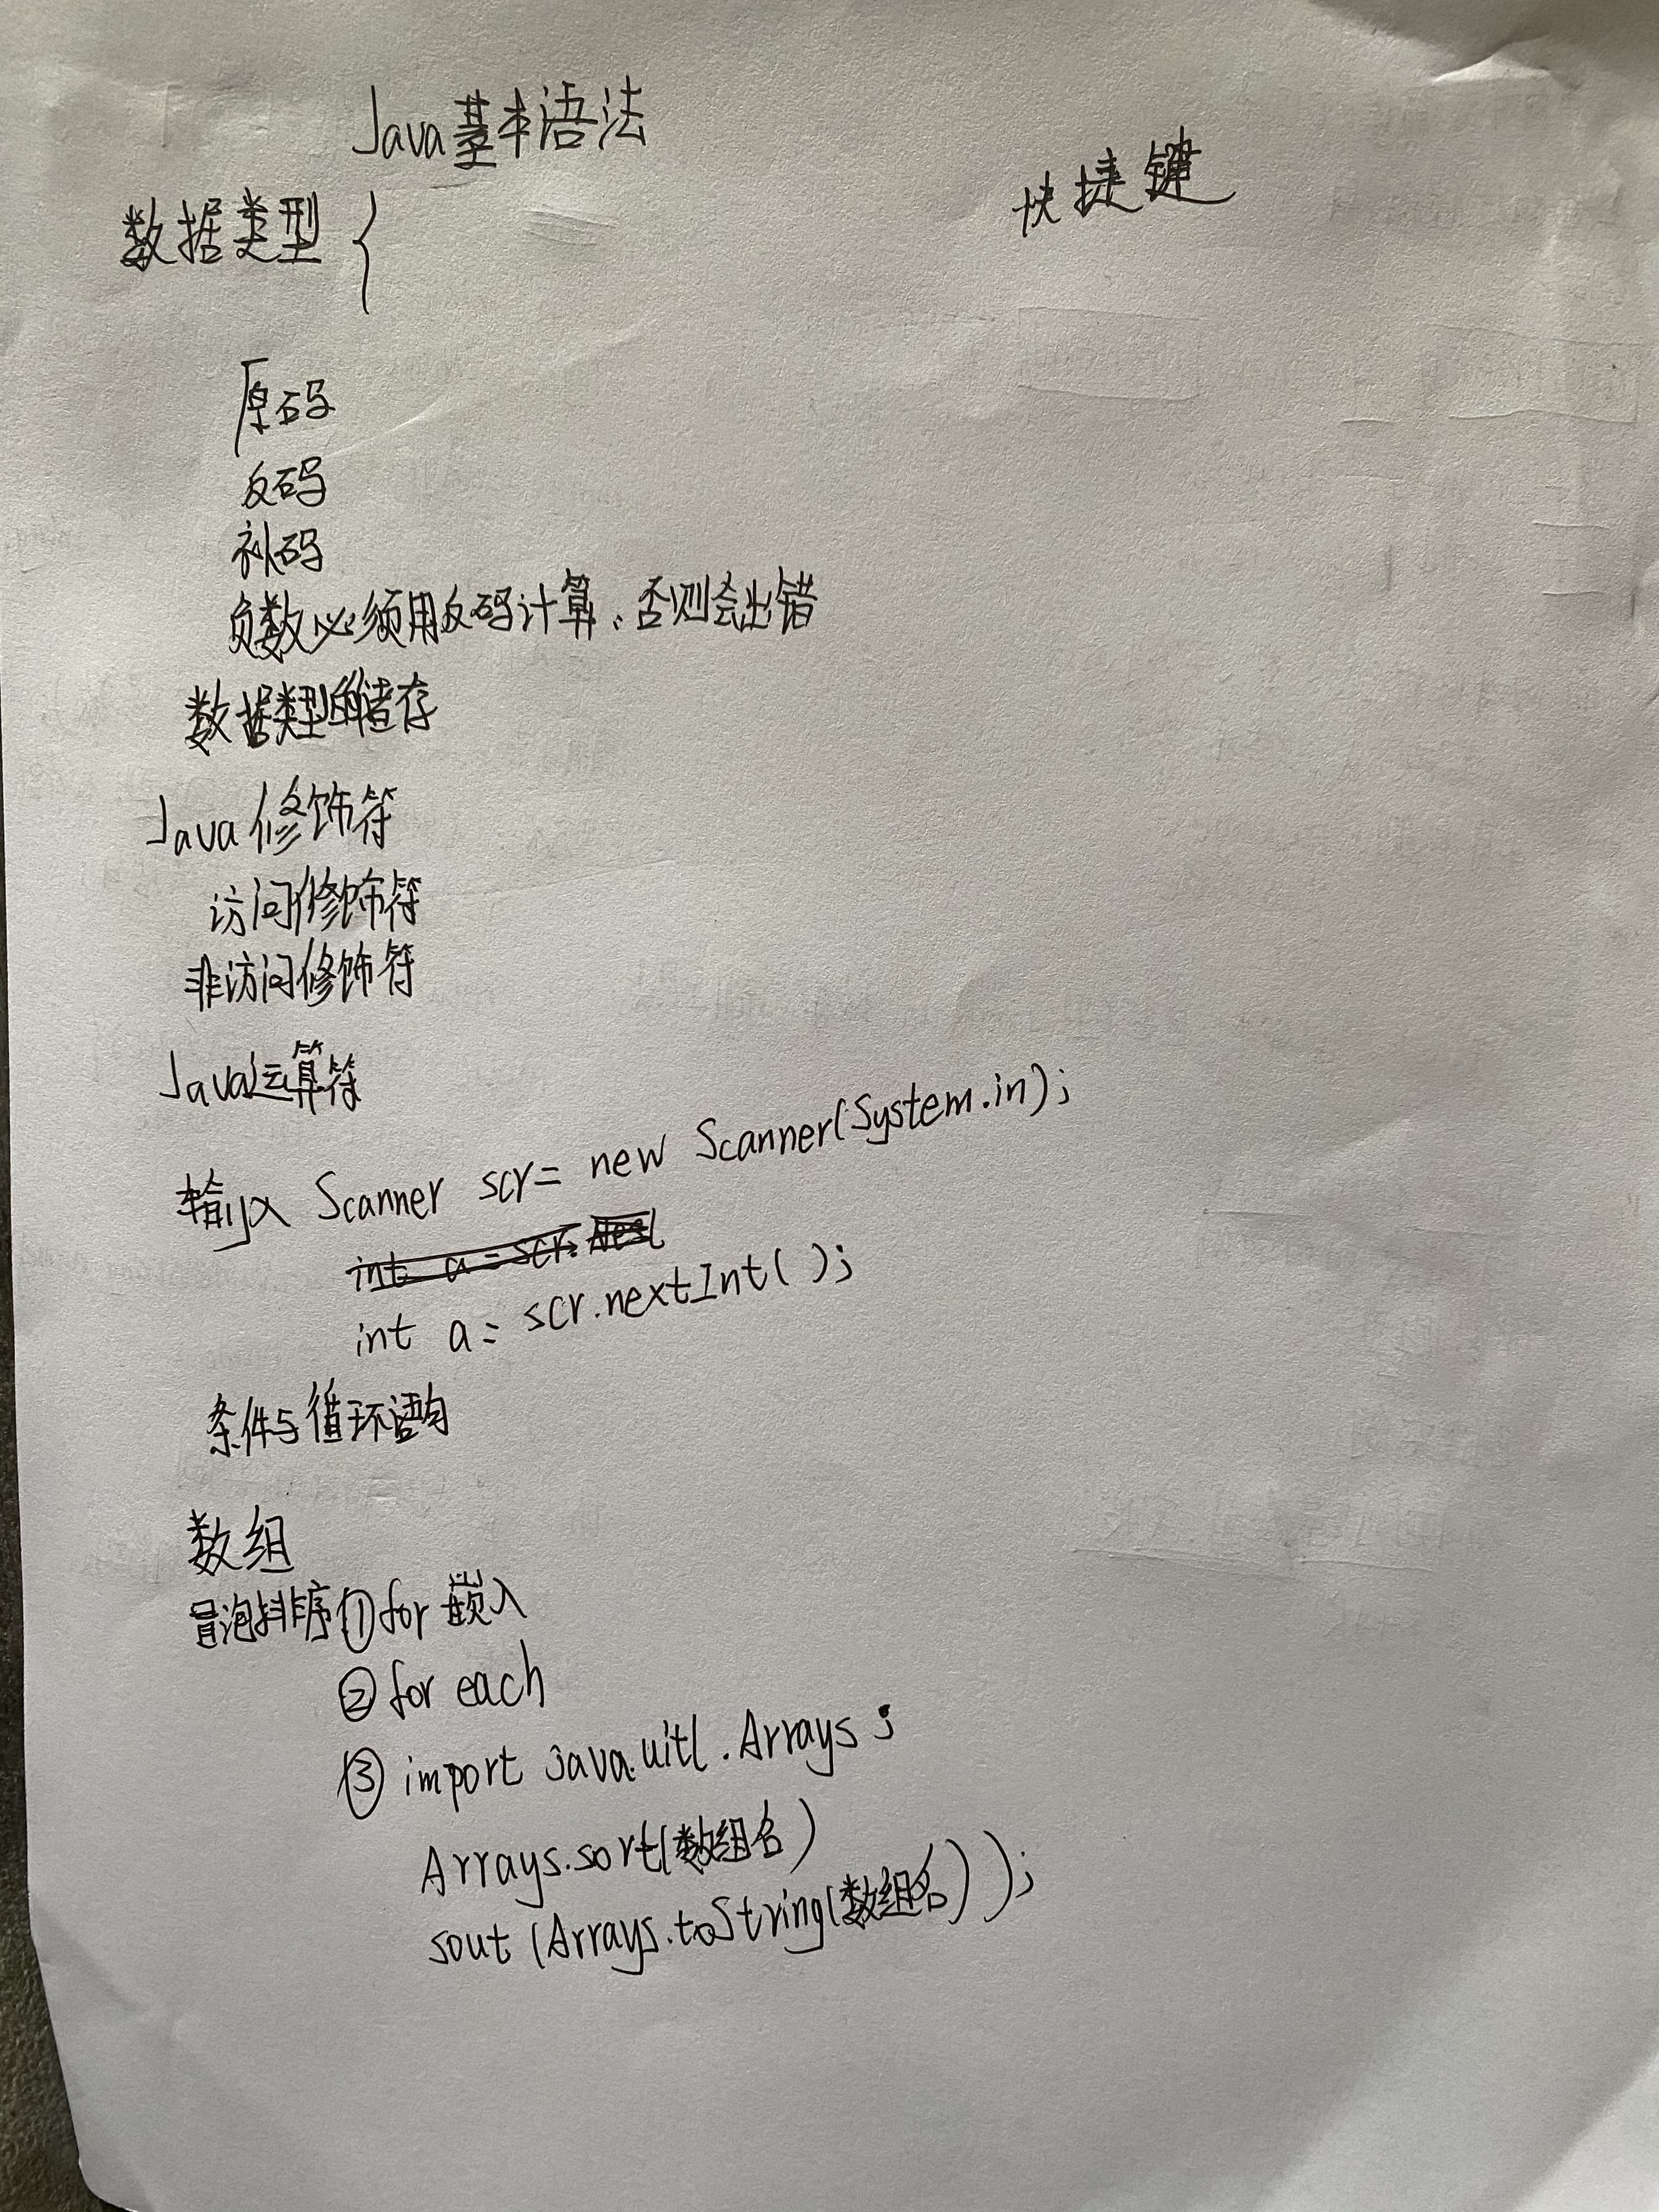 Java基本语法
快捷键
数据类型{
原码
反码
补码
负数必须用反码计算、否则会出错
数据类型的储存
Java修饰符
访问修饰符
非访问修饰符
Java运算符
输入 Scanner scr= new Scanner(System.in);
int a = scr.
int a= scr.nextInt( );
条件与循环语句
数组
冒泡排序①for嵌入
②for each
③import java.uitl.Arrays;
Arrays.sort(数组名)
sout (Arrays.toString(数组名));